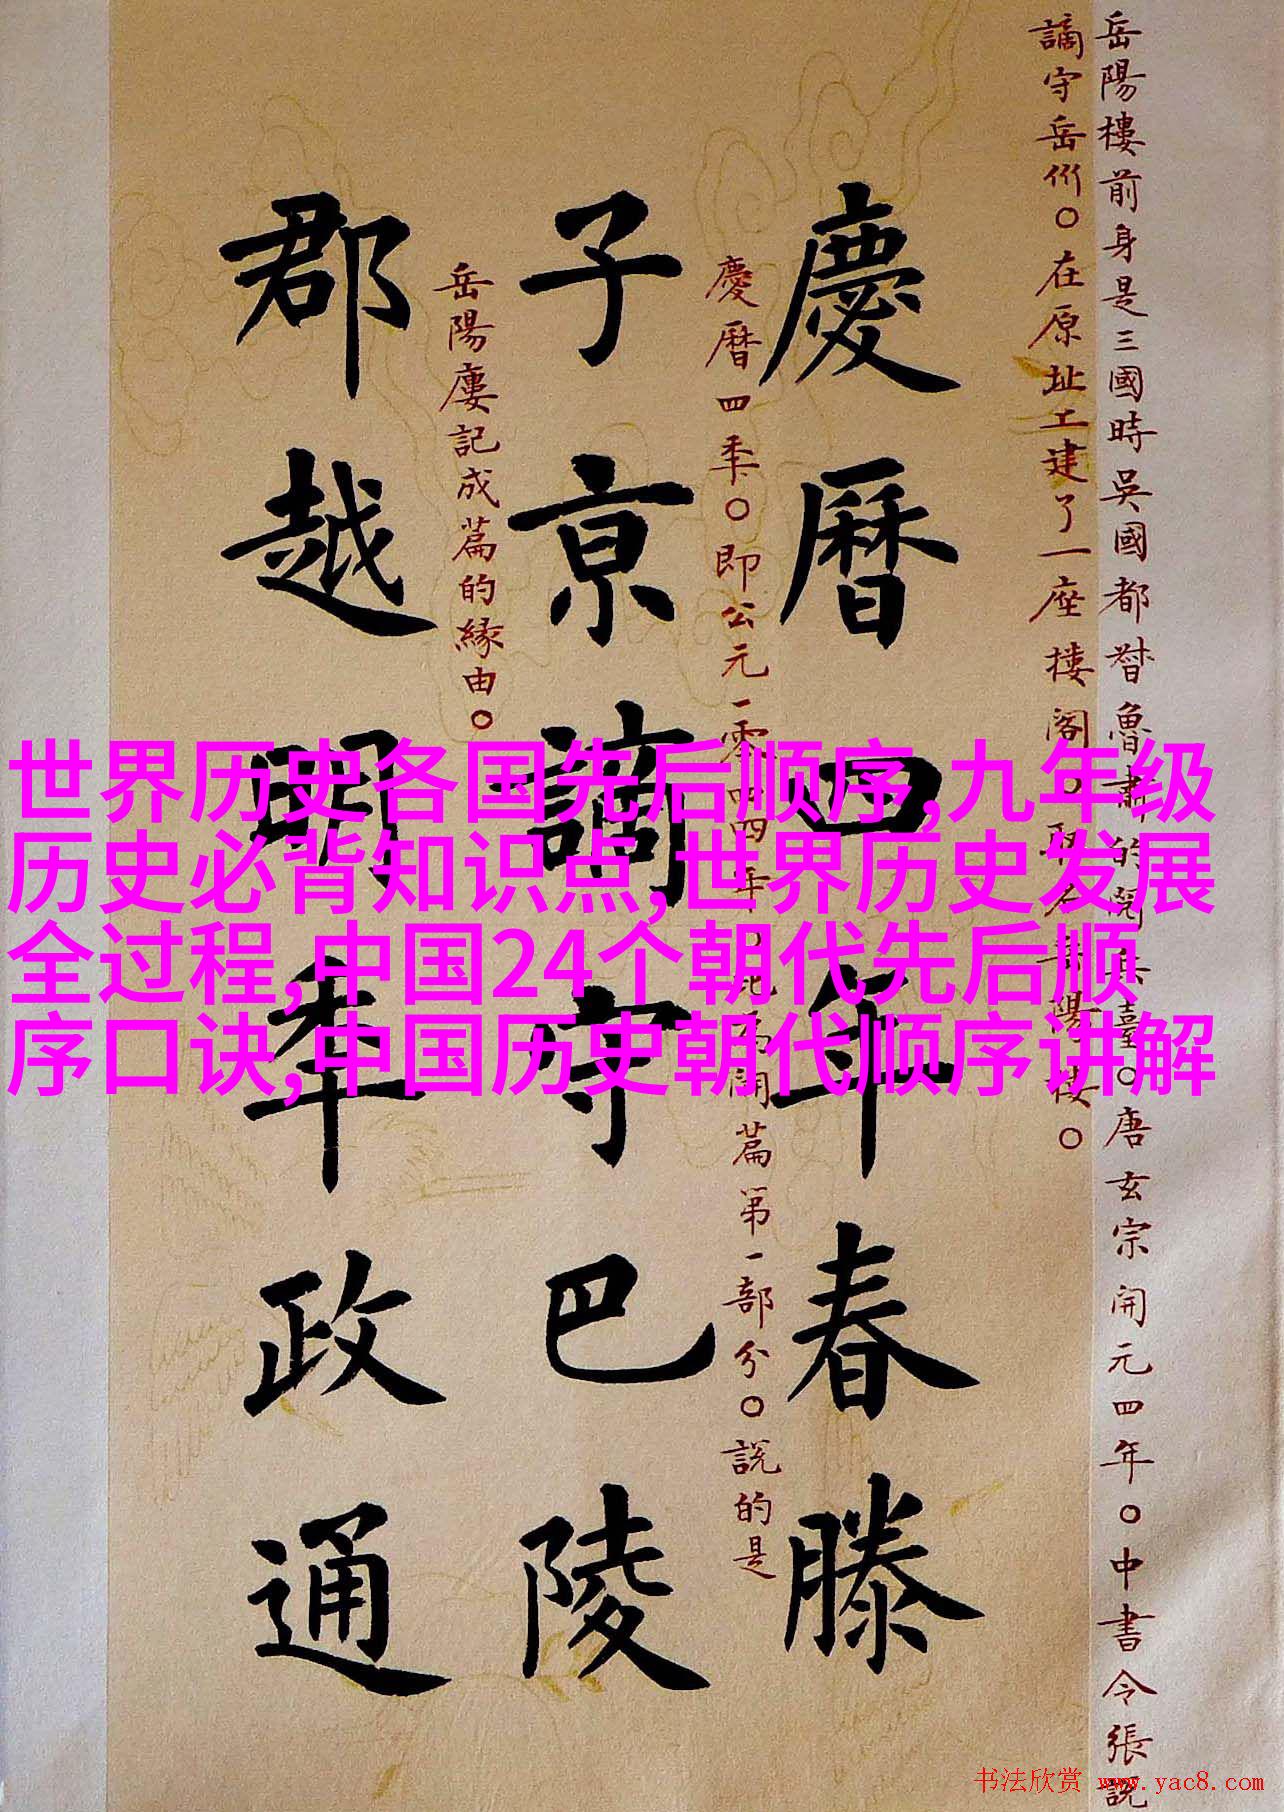 岳陽樓前身是三國時吳國都督魯肅的閱兵臺○唐玄宗開元四年○中書令張說
謫守岳州○在原址上建了一座樓閣○取名岳陽樓○
慶曆四年春滕
慶曆四年○即公元一零四四年○此為開篇第一部分○說的是
子京謫守巴陵
岳陽樓記成篇的緣由○
郡越明年政通
世界历史各国先后顺序,九年级
历史必背知识点,世界历史发展
全过程,中国24个朝代先后顺
序口诀,中国历史朝代顺序讲解
书法欣赏 www.yac8.com